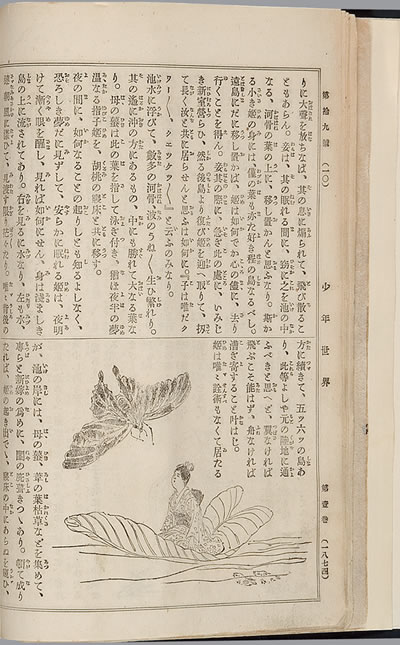 第拾九號 (一〇)
少年世界
第壹卷 (一八七四)
りに大聲を放ちなば、其の息に煽られて、飛び散るこ
ともあらん。妾は、其の眠れる間に、窃に之を池の中
なる、河骨の葉の上に、移し置かんと思ふなり。斯か
る小さき姫の身には、僅の葉も亦た好き程の島なるべし。
遠島にだに移し置かば、姫は如何でか心の儘に、去り
行くことを得ん。妾其の際に、急ぎ此の處に、いみじ
き新室營らひ、然る後島より復び姫を迎へ取りて、扨
て長く汝と共に居らせんと思ふは如何に。』息子は唯だ『ク
ワー〱、クェツケクー、』と云ふのみなり。
池水に浮びて、數多の河骨、波のうね〱生ひ繁れり。
其の遙に沖の方にあるもの、中にも勝れて大なる葉な
り。母の蟇は此の葉を指して泳ぎ付き、猶ほ夜半の夢
温なる指子姫を、胡桃の寢床と共に移す。
夜の間に、如何なることの起りしとも知るよしなく、
恐ろしき夢だに見ずして、安らかに眠れる姫は、夜明
けて漸く眼を醒し、見れば如何にせん。身は淺ましき
島の上に流されてあり。右を見るに水なり、左も水
方に續きて、五ツ六ツの島あ
り、此等よしや元の陸地に通
ふべきと思へど、翼なければ
飛ぶこと能はず、舟なければ
漕ぎ寄すること叶はじ。
姫は唯だ詮術もなくて居たる
が、池の岸には、母の蟇、葦の葉枯草などを集めて、
專らと新嫁の爲めに、閨の